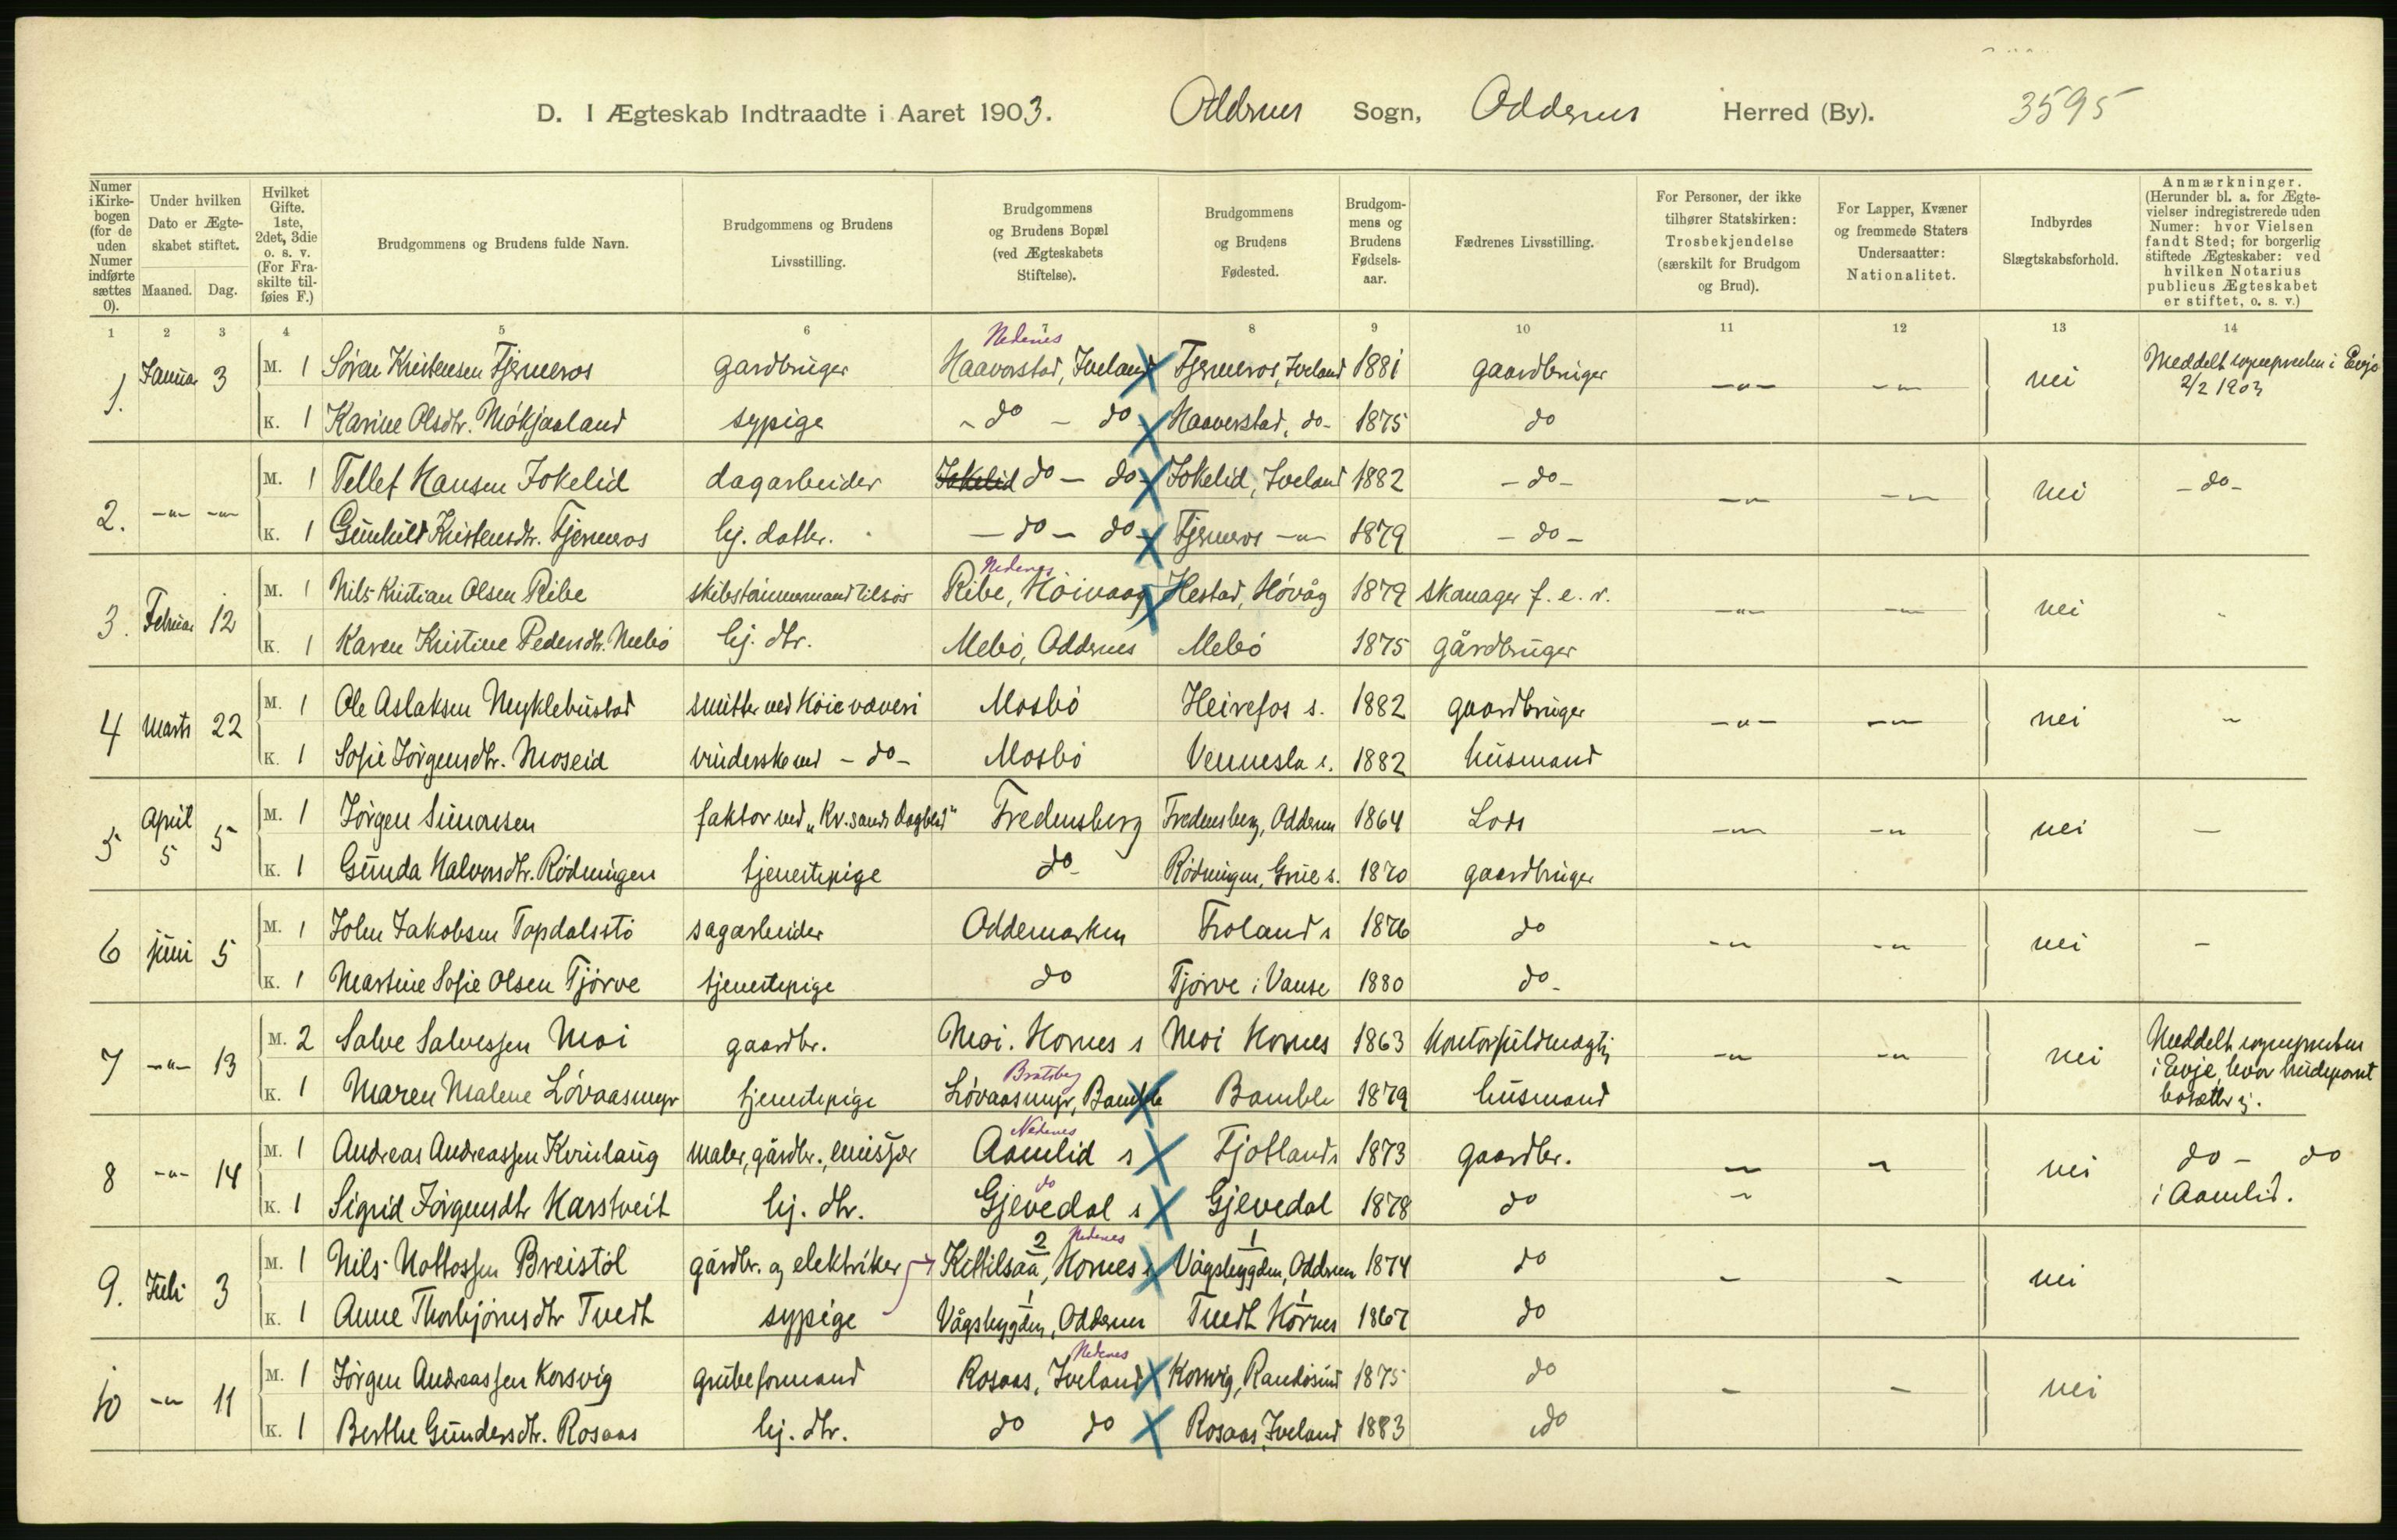 D. I Ægteskab Indtraadte i Aaret 1903. Oddernes Sogn, Oddernes Herred (By). 3595
Numer i Kirkebogen (for de uden Numer indførte sættes 0).
Under hvilken Dato er Ægteskabet stiftet.
Maaned. Dag.
Hvilket Gifte. 1ste, 2det, 3die o. s. v. (For Fraskilte tilføies F.)
Brudgommens og Brudens fulde Navn.
Brudgommens og Brudens Livsstilling.
Brudgommens og Brudens Bopæl (ved Ægteskabets Stiftelse).
Brudgommens og Brudens Fødested.
Brudgommens og Brudens Fødselsaar.
Fædrenes Livsstilling.
For Personer, der ikke tilhører Statskirken: Trosbekjendelse (særskilt for Brudgom og Brud).
For Lapper, Kvæner og fremmede Staters Undersaatter: Nationalitet.
Indbyrdes Slægtskabsforhold.
Anmærkninger. (Herunder bl. a. for Ægtevielser indregistrerede uden Numer: hvor Vielsen fandt Sted; for borgerlig stiftede Ægteskaber: ved hvilken Notarius publicus Ægteskabet er stiftet, o. s. v.)
1 2 3 4 5 6 7 8 9 10 11 12 13 14
Nedenes
1. Januar 3 M. 1 Søren Kristensen Tjerneros gardbruger Haaverstad, Iveland Tjerneros, Iveland 1881 gaardbruger -"- -"- nei Meddelt sognepresten i Evje 2/2 1903
K. 1 Karine Olsdtr. Mókjaaland sypige - do - do - Haaverstad, do - 1875 do
2. -"- -"- M. 1 Tellef Hansen Jokelid dagarbeider Jokelid do - do - Jokelid, Iveland 1882 - do - -"- -"- nei - do -
K. 1 Gunhild Kristensdtr. Tjerneros hj. datter. - do - do - Tjerneros -"- 1879 - do -
Nedenes
3. Februar 12 M. 1 Nils Kristian Olsen Ribe skibstømmermand tilsøs Ribe, Höivaag Hestad, Hóvåg 1879 skanager f. e. v. -"- -"- nei -
K. 1 Karen Kristine Pedersdtr. Mebó hj. dtr. Mebó, Oddernes Mebó 1875 gårdbruger
4 Marts 22 M. 1 Ole Aslaksen Myklebustad smitter ved Höievæveri Mosbó Heirefos s. 1882 gaardbruger -"- -"- nei -
K. 1 Sofie Jórgensdtr. Moseid vinderske ved - do - Mosbó Vennesla s. 1882 husmand
5 April 5 5 M. 1 Jórgen Simonsen faktor ved "Kr.sands Dagblad" Fredensberg Fredensberg, Oddernes 1864 Lods -"- -"- nei -
K. 1 Gunda Halvorsdtr. Ródningen tjenestepige do - Ródningen, Grue s. 1870 gaardbruger
6 juni 5 M. 1 John Jakobsen Topdalsstó sagarbeider Oddemarken Froland s 1876 do -"- -"- nei -
K. 1 Martine Sofie Olsen Tjórve tjenestepige do Tjórve i Vanse 1880 do -
7 -"- 13 M. 2 Salve Salvessen Moi gaardbr. Moi. Hornes s Moi Hornes 1863 Kontorfuldmægtig -"- -"- nei Meddelt sognepresten
Bratsberg
K. 1 Maren Malene Lóvaasmyr tjenestepige Lóvaasmyr, Bamble Bamble 1879 husmand i Evje, hvor brudeparret bosætter sig.
Nedenes
8 -"- 14 M. 1 Andreas Andreassen Kvinlaug maler, gårdbr., emissær Aamlid s Fjotland s 1873 gaardbr. -"- -"- nei do - do
do
K. 1 Sigrid Jórgensdtr Harstveit hj. dtr. Gjevedal s Gjevedal 1878 do -"- i Aamlid.
2 Nedenes 1
9. Juli 3 M. 1 Nils Nottossen Breistöl gårdbr. og elektriker Kittilsaa, Hornes s Vågsbygden, Oddernes 1874 do - - nei
1 1
K. 1 Anne Thorbjórnsdtr Tvedt sypige Vågsbygden, Oddernes Tvedt Hornes 1867 do
Nedenes
10 -"- 11 M. 1 Jórgen Andreassen Korsvig grubeformand Rosaas, Iveland Korsvig, Randósund 1875 do - - nei
K. 1 Berthe Gundersdtr. Rosaas hj. dtr. do do Rosaas, Iveland 1883 do